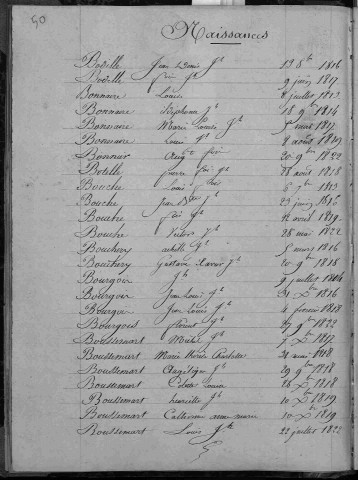 50
Naissances
Botelle Jean Louis Jh 19 8bre 1816
Botelle 9 juin 1817
Bonnaire Louis 8 juillet 1813
Bonnaire Stéphanie Jh 18 9bre 1814
Bonnaire Marie Louise Jh 5 mars 1817
Bonnaire Louis Jh 8 août 1819
Bonnier Augte 20 9bre 1822
Botelle pierre Jh 18 août 1818
Bouche Louis 1813
Bouche Jean Bte Jh 23 juin 1816
Bouche Jh 12 avril 1819
Bouche Victor Jh 28 mai 1822
Bouchery achille Jh 5 mars 1816
Bouchery Gustave Xavier Jh 20 9bre 1818
Bourgois Jh 9 juillet 1814
Bourgois Jean Louis Jh 21 Xbre 1816
Bourgois Jean Louis Jh 4 février 1818
Bourgois florent Jh 27 9bre 1822
Boussemart 7 Xbre 1817
Boussemart Marie Henriette 31 mai 1818
Boussemart Angélique Jh 29 9bre 1818
Boussemart Louise 26 Xbre 1818
Boussemart henriette Jh 10 Xbre 1819
Boussemart Catherine anne marie 10 Xbre 1819
Boussemart Louis Jh 22 juillet 1822